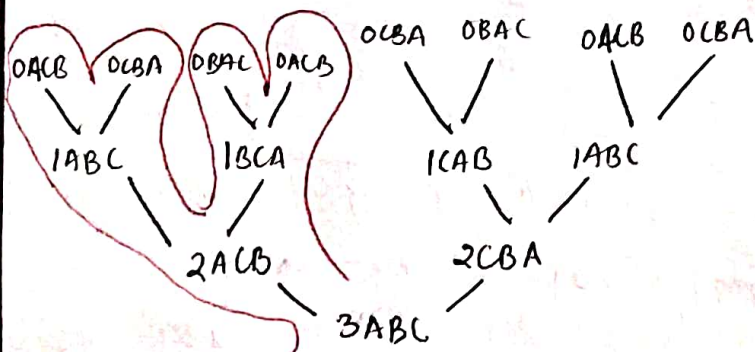 0ACB 0CBA 0BAC 0ACB 0CBA 0BAC 0ACB 0CBA
1ABC 1BCA 1CAB 1ABC
2ACB 2CBA
3ABC